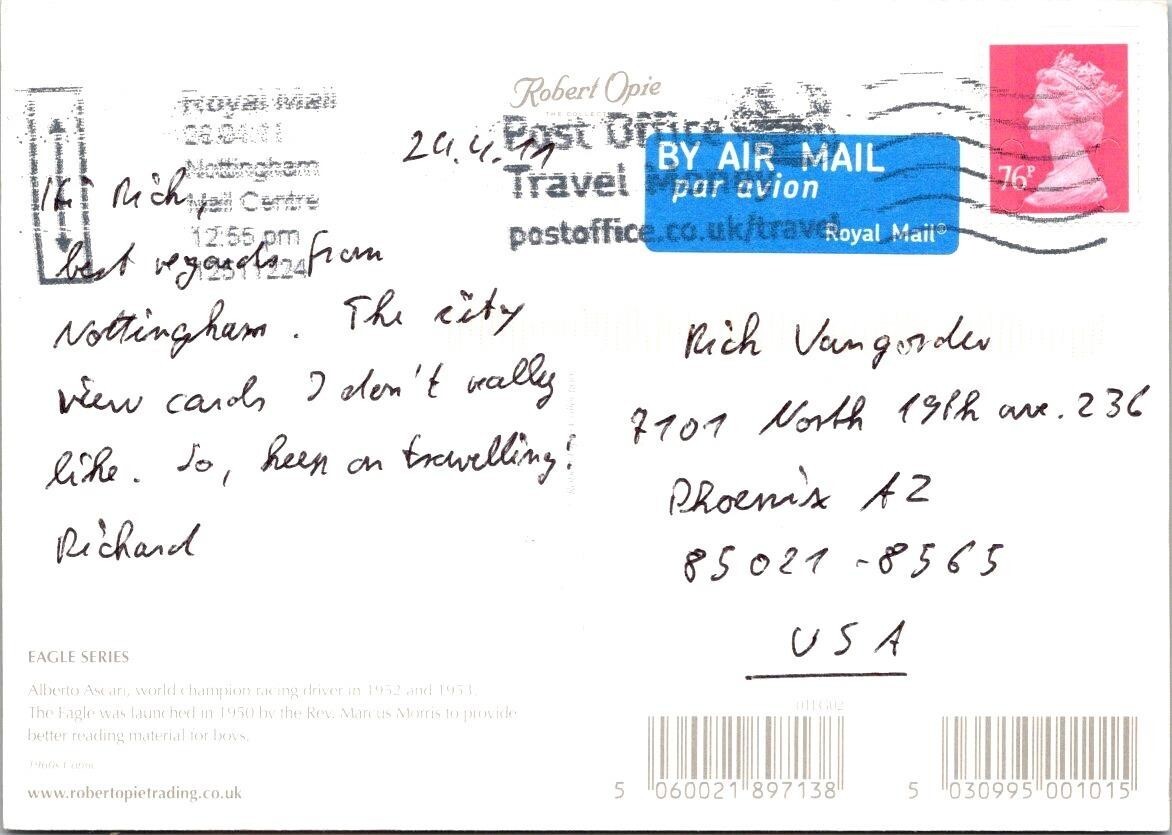 Robert Opie
Royal Mail
Nottingham
Mail Centre
12:55 pm
12511224
Post Office
Travel Money
postoffice.co.uk/travel
BY AIR MAIL
par avion
Royal Mail®
76P
24.4.11
Hi Rich,
best regards from
Nottingham. The city
view cards I don't really
like. So, keep on travelling!
Richard
Rich Vangorder
7101 North 19th ave. 236
Phoenix AZ
85021-8565
USA
EAGLE SERIES
Alberto Ascari, world champion racing driver in 1952 and 1953.
The Eagle was launched in 1950 by the Rev. Marcus Morris to provide
better reading material for boys.
www.robertopietrading.co.uk
011G02
5 060021 897138
5 030995 001015